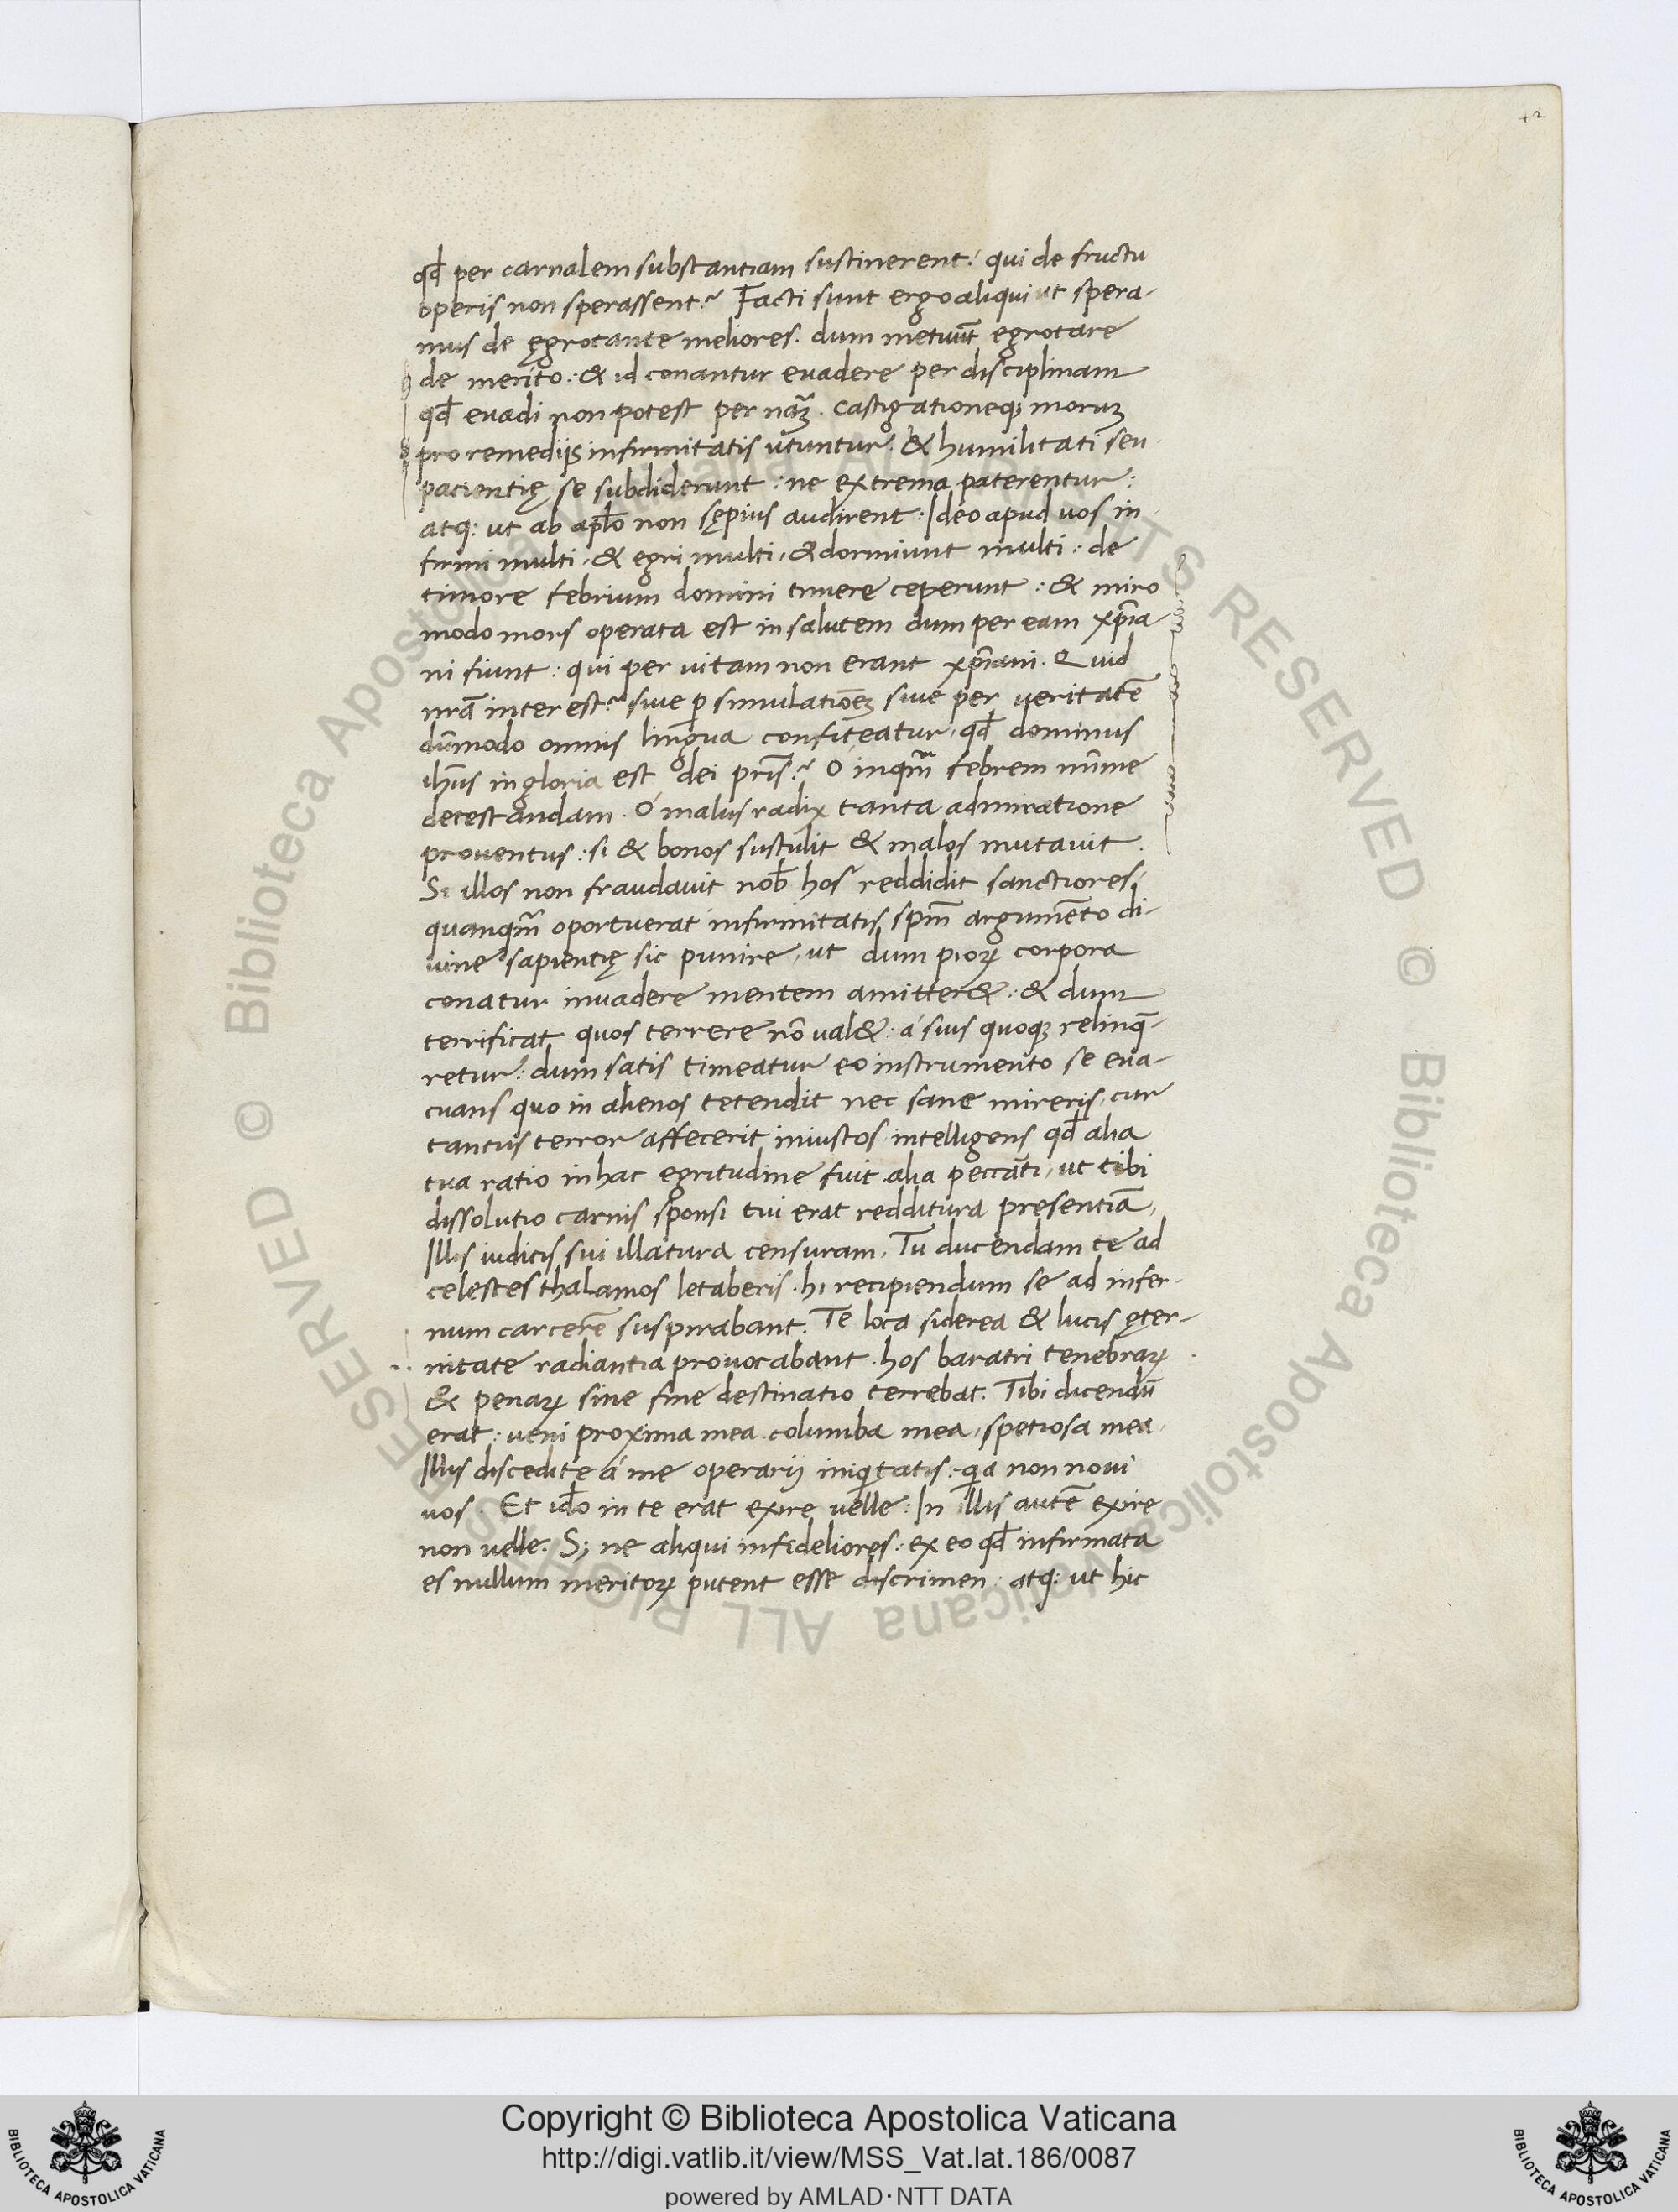 42
qđ per carnalem substantiam sustinerent: qui de fructu
operis non sperassent? Facti sunt ergo aliqui ut spera-
mus de ęgrotante meliores. dum metuūt egrotare
de merito: & id conantur evadere per disciplinam
qđ evadi non potest per nāꝫ. castigationeqꝫ moruꝫ
pro remedijs infirmitatis utuntur. & humilitati seu
pacientię se subdiderunt: ne extrema paterentur:
atq: ut ab apƚo non sępius audirent: Ideo apud vos in-
firmi multi, & egri multi, & dormiunt multi: de
timore febrium domini timere ceperunt: & miro
modo mors operata est in salutem dum per eam xp̄ia-
ni fiunt: qui per vitam non erant xp̄iani. Quid
nrā interest? sive ꝑ simulatiōeꝫ sive per veritatē
dūmodo omnis lingua confiteatur, qđ dominus
ihūs in gloria est dei pr̄is? O inqm̄ febrem nīme
detestandam. ó malus radix tanta admiratione
proventus: si & bonos sustulit & malos mutavit.
Si illos non fraudavit nob̄ hos reddidit sanctiores:
quanqm̄ oportuerat infirmitatis spm̄ argumēto di-
vine sapientię sic punire, ut dum pioꝝ corpora
conatur invadere mentem amitter&: & dum
terrificat quos terrere nō val&: á suis quoqꝫ relinq̄-
retur: dum satis timeatur eo instrumento se eva-
cuans quo in alienos tetendit nec sane mireris, cur
tantus terror affecerit iniustos intelligens qđ alia
tua ratio in hac egritudine fuit alia peccāti, ut tibi
dissolutio carnis sponsi tui erat redditura pręsentiā,
Illis iudicis sui illatura censuram. Tu ducendam te ad
celestes thalamos letaberis. hi recipiendum se ad infer-
num carcerē suspirabant. Te loca siderea & lucis ęter-
nitate radiantia provocabant. hos baratri tenebraꝝ
& penaꝝ sine fine destinatio terrebat. Tibi dicendū
erat: veni proxima mea columba mea, spetiosa mea.
Illis discedite á me operarij iniqitatis: qa non novi
vos. Et iđo in te erat exire velle: In illis autē exire
non velle. S; ne aliqui infideliores: ex eo qđ infirmata
es nullum meritoꝝ putent esse discrimen: atq: ut hic
Copyright © Biblioteca Apostolica Vaticana
http://digi.vatlib.it/view/MSS_Vat.lat.186/0087
powered by AMLAD·NTT DATA
BIBLIOTECA APOSTOLICA VATICANA
BIBLIOTECA APOSTOLICA VATICANA
© Biblioteca Apostolica Vaticana ALL RIGHTS RESERVED
© Biblioteca Apostolica Vaticana ALL RIGHTS RESERVED